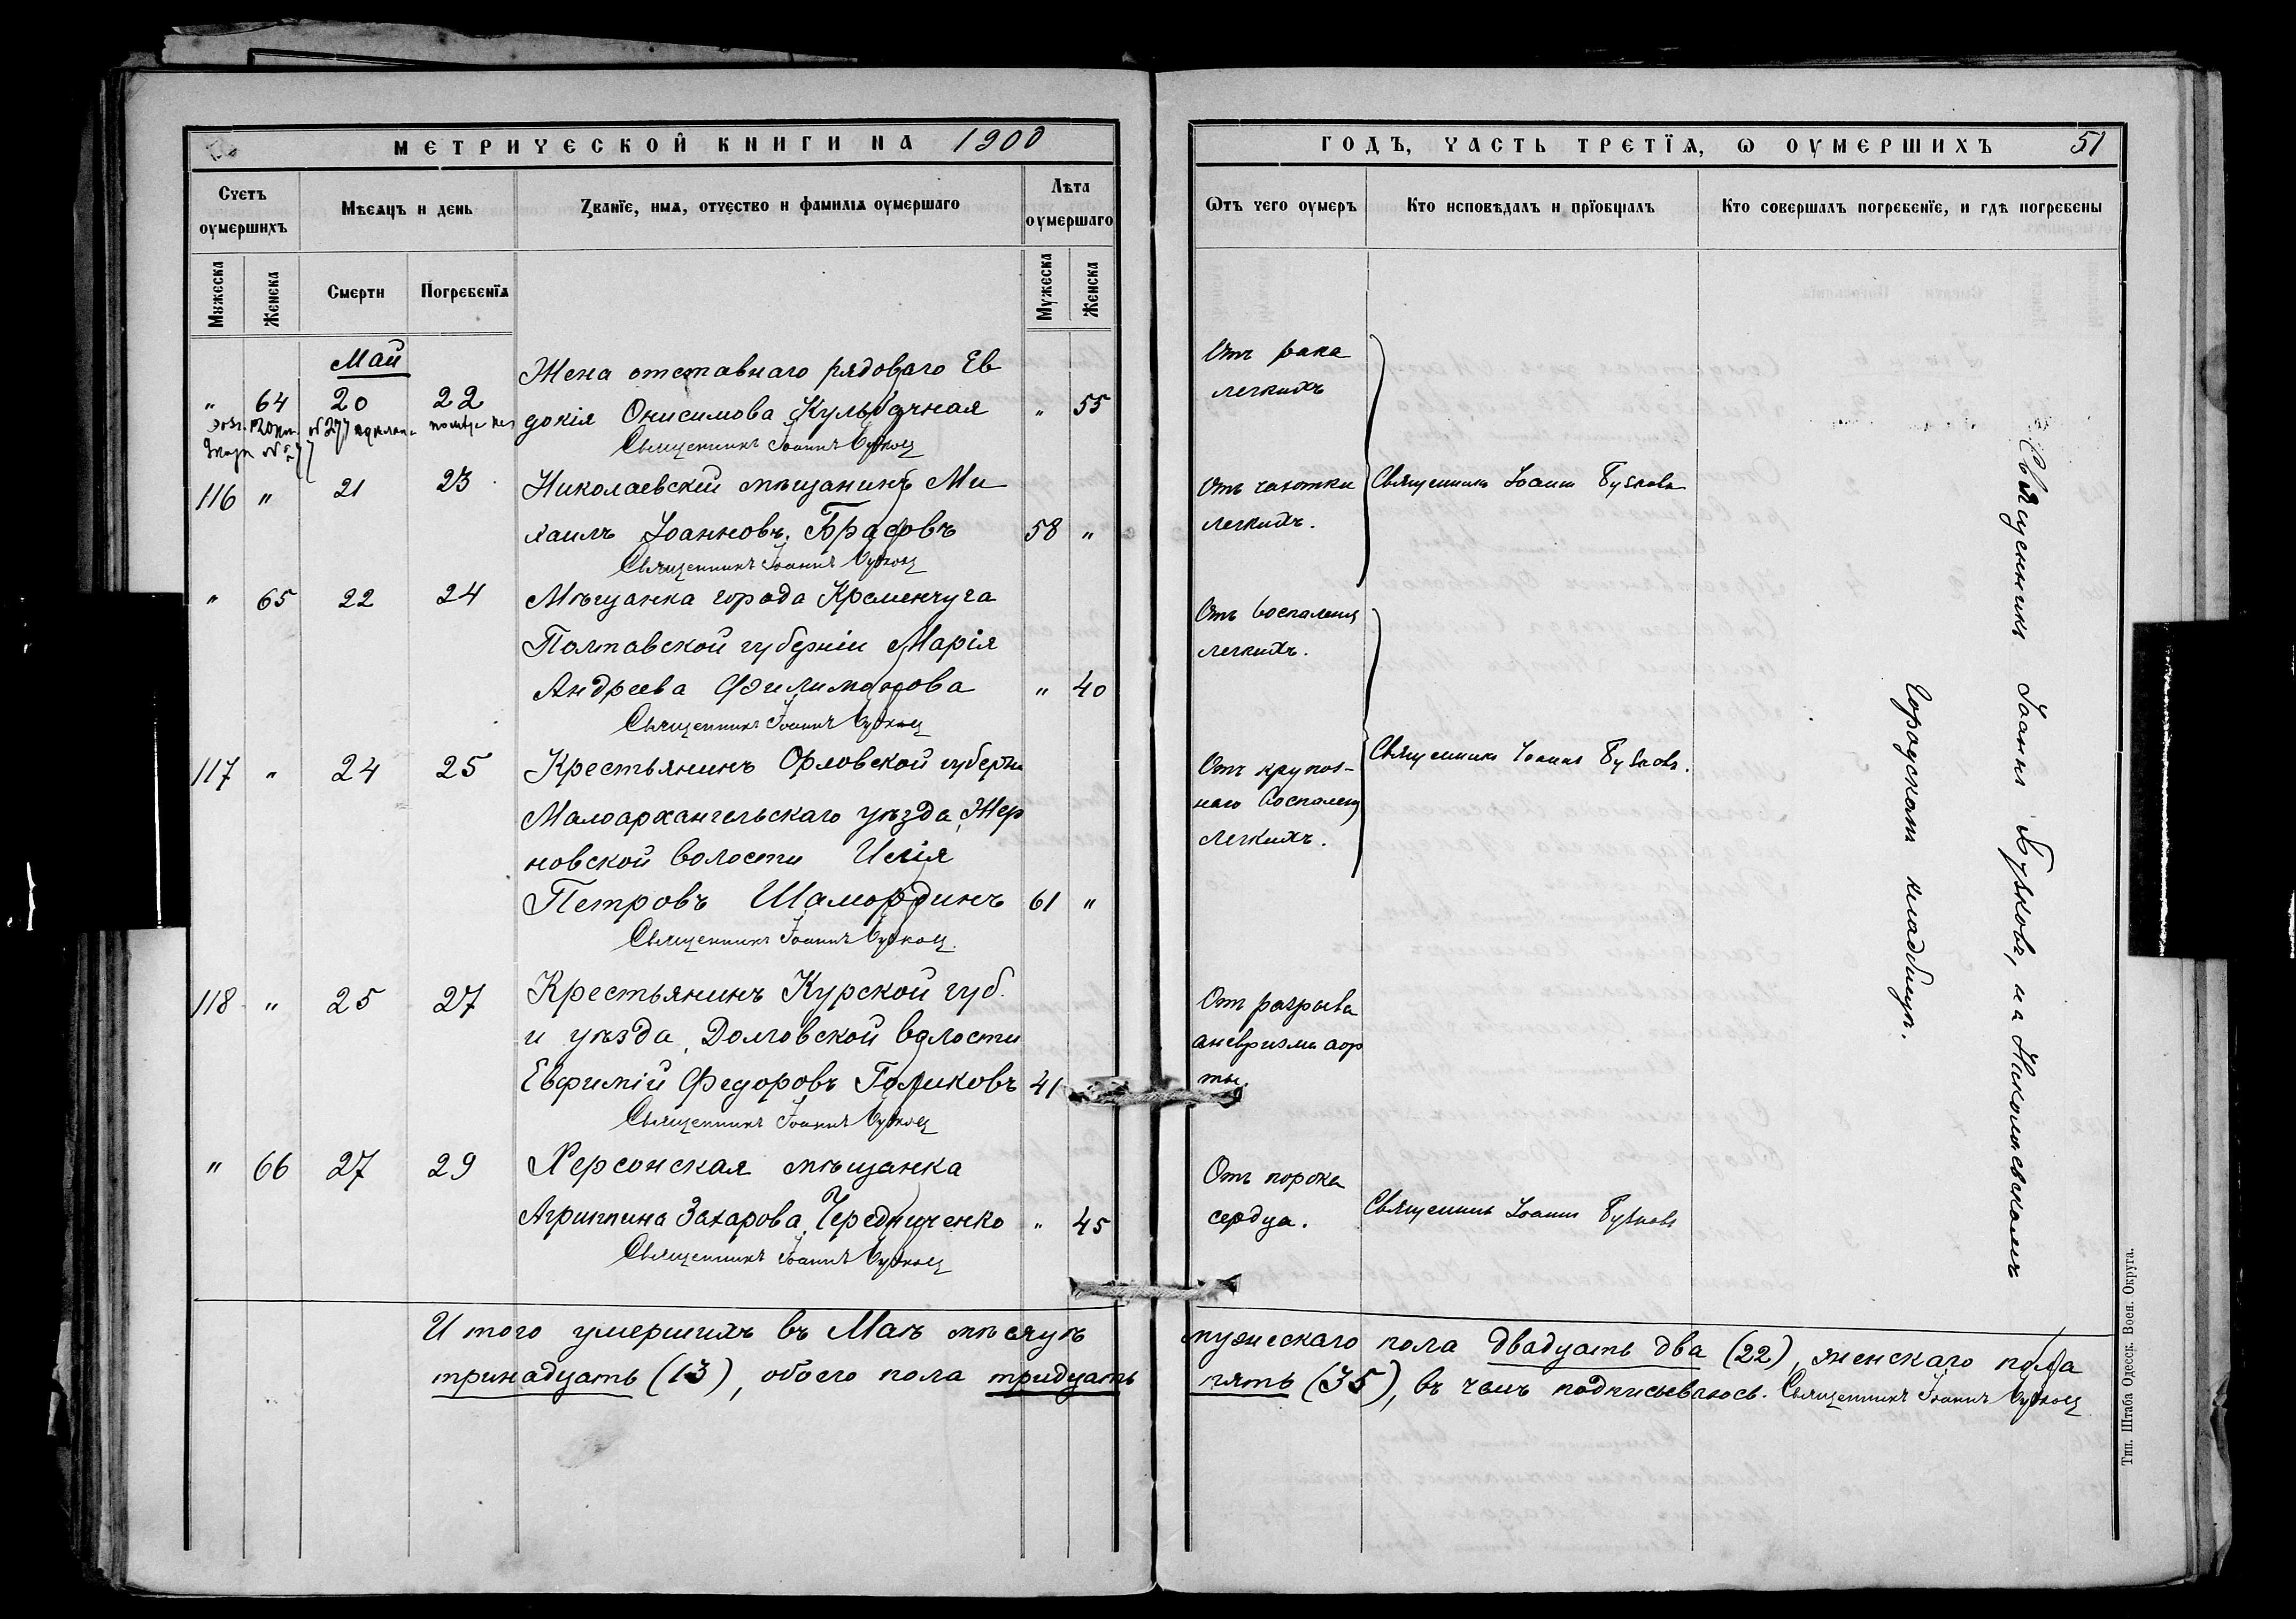 МЕТРИЧЕСКОЙ КНИГИ НА 1900
Счетъ умершихъ
Мѣсяцъ и день
Званіе, имя, отчество и фамилія умершаго
Лѣта умершаго
Мужеска
Женска
Смерти
Погребенія
Мужеска
Женска
Май
" 64 20 22
Жена отставнаго рядоваго Ев
докія Онисимова Кульбачная " 55
Священникъ Іоаннъ Бутковъ
116 " 21 23 Николаевскій мѣщанинъ Ми
хаилъ Іоанновъ Брасовъ 58 "
Священникъ Іоаннъ Бутковъ
" 65 22 24 Мѣщанка города Кременчуга
Полтавской губерніи Марія
Андреева Филимонова " 40
Священникъ Іоаннъ Бутковъ
117 " 24 25 Крестьянинъ Орловской губерніи
Малоархангельскаго уѣзда, Жер
новской волости Илія
Петровъ Шамординъ 61 "
Священникъ Іоаннъ Бутковъ
118 " 25 27 Крестьянинъ Курской губ.
и уѣзда, Долговской волости
Евфимій Федоровъ Голиковъ 41
Священникъ Іоаннъ Бутковъ
" 66 27 29 Херсонская мѣщанка
Агриппина Захарова Чередниченко " 45
Священникъ Іоаннъ Бутковъ
Итого умершихъ въ Маѣ мѣсяцѣ
тринадцать (13), обоего пола тридцать
ГОДЪ, ЧАСТЬ ТРЕТІЯ, О УМЕРШИХЪ 51
Отъ чего умеръ
Кто исповѣдалъ и пріобщалъ
Кто совершалъ погребеніе, и гдѣ погребены
Отъ рака
легкихъ
Отъ чахотки
легкихъ.
Священникъ Іоаннъ Бутковъ
Отъ воспаленія
легкихъ.
Отъ крупоз-
наго воспаленія
легкихъ.
Священникъ Іоаннъ Бутковъ.
Отъ разрыва
аневризмы аор
ты.
Отъ порока
сердца.
Священникъ Іоаннъ Бутковъ
Священникъ Іоаннъ Бутковъ, на Николаевскомъ
городскомъ кладбищѣ.
мужескаго пола двадцать два (22), женскаго пола
пять (35), въ чемъ подписываюсь. Священникъ Іоаннъ Бутковъ
Тип. Штаба Одесск. Воен. Округа.